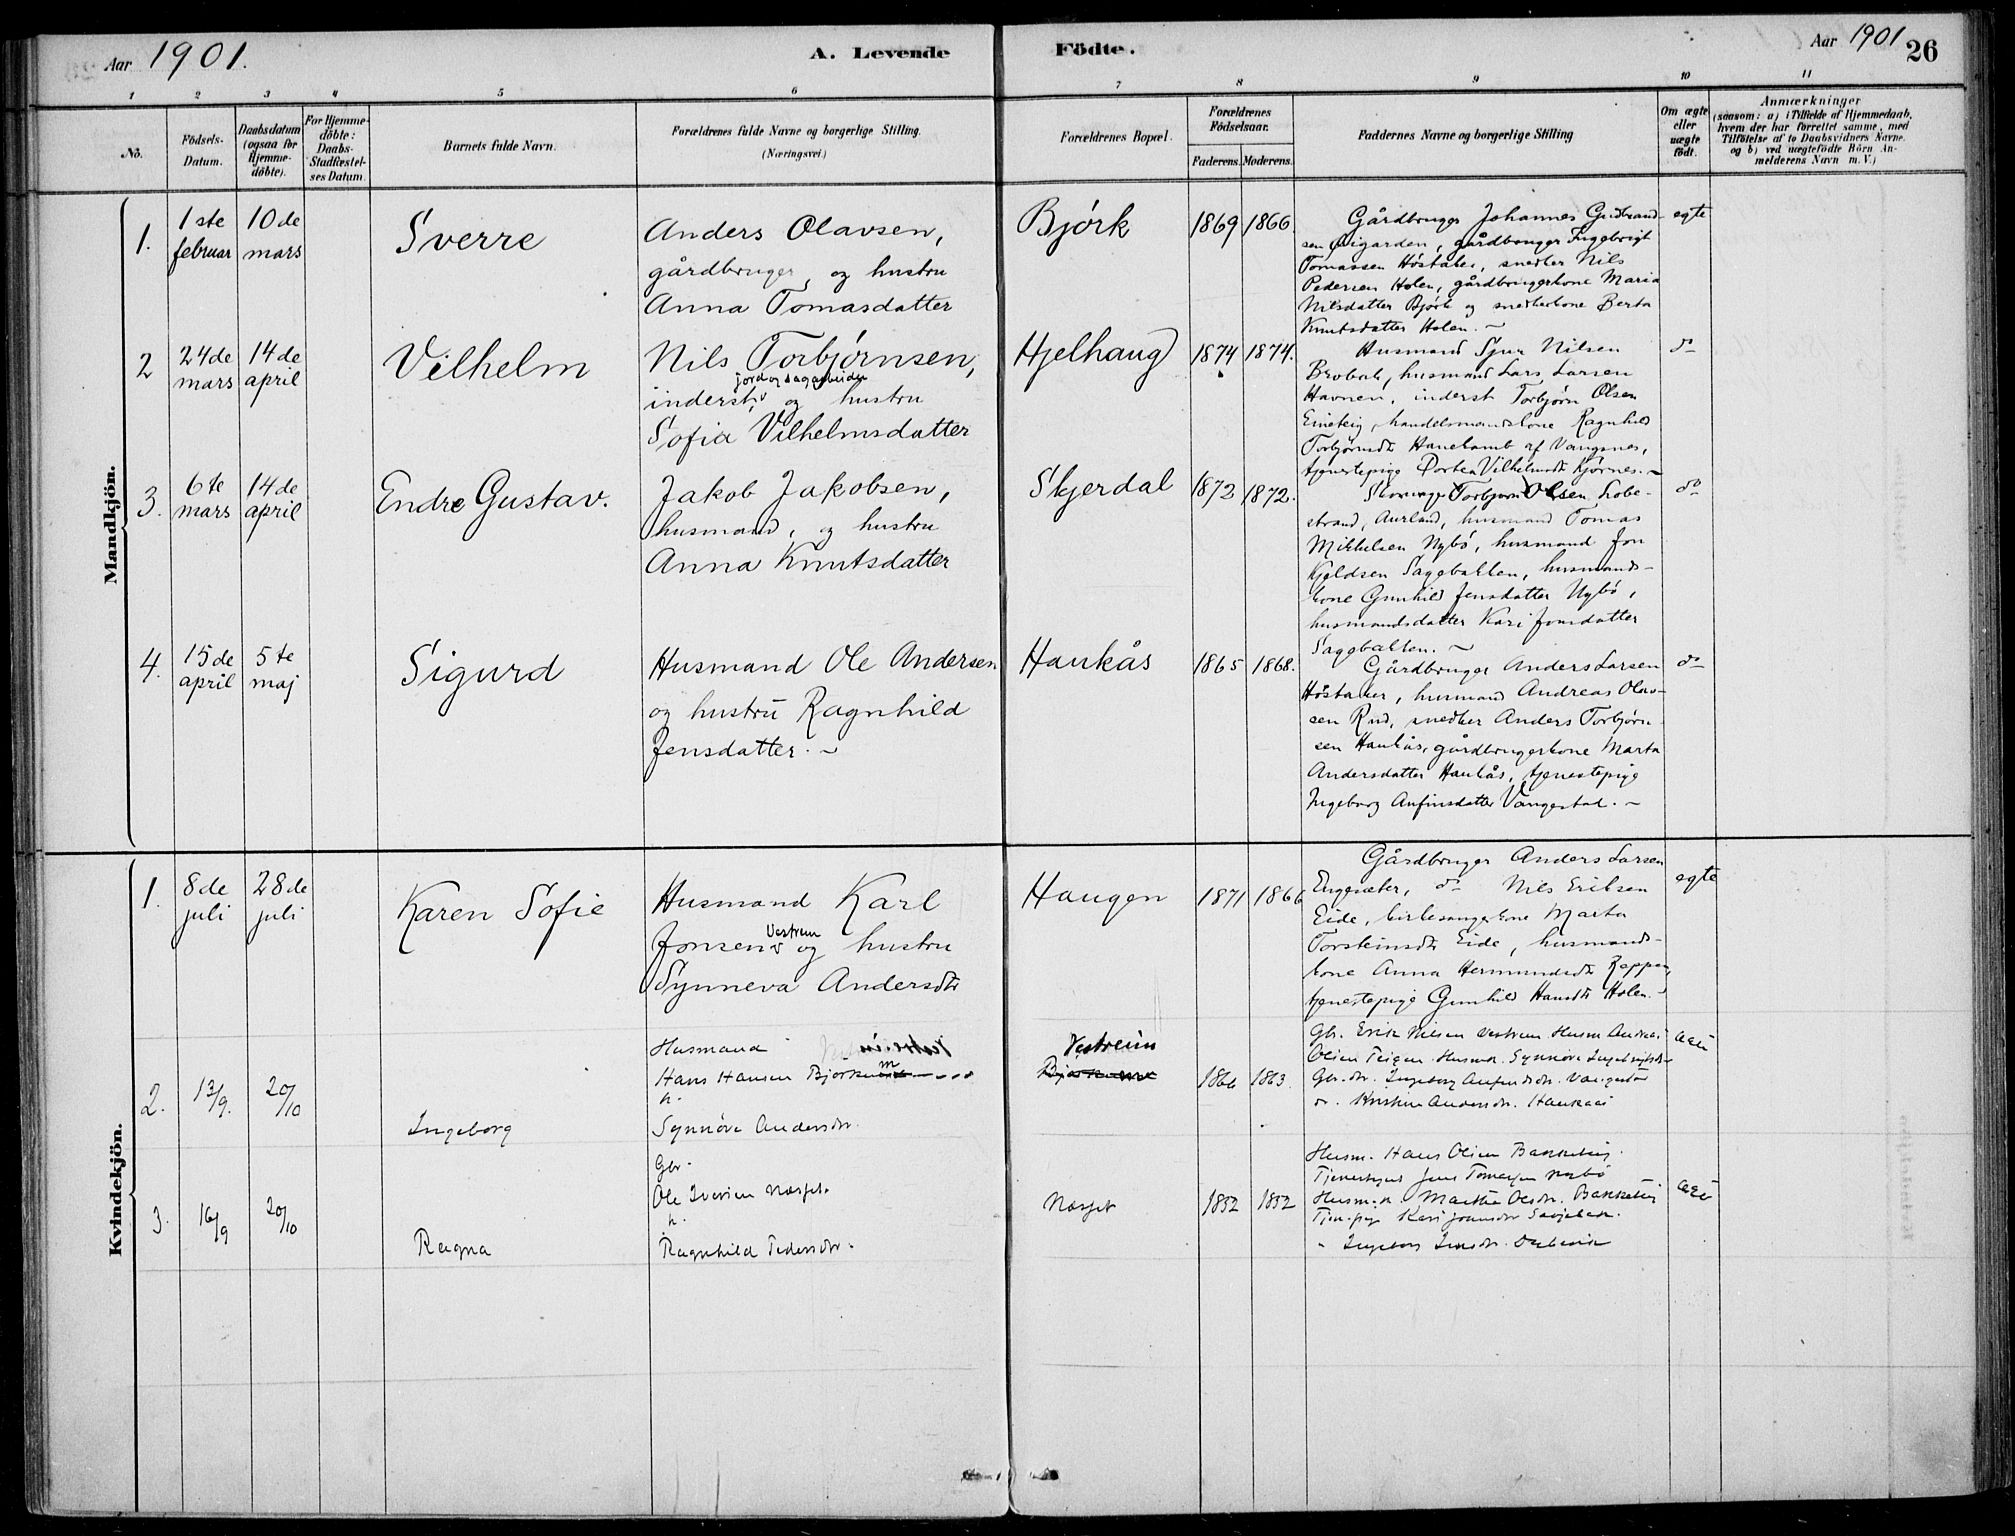 Aar 1901.
A. Levende
Födte.
Aar 1901
26
1 2 3 4 5 6 7 8 9 10 11
No.
Födsels-
Datum.
Daabsdatum
(ogsaa for
Hjemme-
döbte).
For Hjemme-
döbte:
Daabs-
Stadfæstel-
ses Datum.
Barnets fulde Navn.
Forældrenes fulde Navne og borgerlige Stilling.
(Næringsvei.)
Forældrenes Bopæl.
Forældrenes
Födselsaar.
Faderens. Moderens.
Faddernes Navne og borgerlige Stilling
Om ægte
eller
uægte
födt.
Anmærkninger
(saasom: a) i Tilfælde af Hjemmedaab,
hvem der har forrettet samme, med
Tilföielse af to Daabsvidners Navne.
og b) ved uægtefödte Börn An-
melderens Navn m. V.)
Mandkjön.
1.
1ste
februar
10de
mars
Sverre
Anders Olavsen,
gårdbruger, og hustru
Anna Tomasdatter
Bjørk
1869
1866.
Gårdbruger Johannes Gudbrand-
sen Øvigarden, gårdbruger Ingebrigt
Tomassen Høstaker, snedker Nils
Pedersen Holen, gårdbrugerkone Maria
Nilsdatter Bjørk og snedkerkone Berta
Knutsdatter Holen. ~
egte
2
24de
mars
14de
april
Vilhelm
Nils Torbjørnsen,
jord og sagarbeider
inderst, og hustru
Sofia Vilhelmsdatter
Hjelhaug
1874
1874.
Husmand Sjur Nilsen
Brobak, husmand Lars Larsen
Havnen, inderst Torbjørn Olsen
Eineteig, handelsmandskone Ragnhild
Torbjørnsdtr Hanekamb af Vangsnes,
tjenestepige Dortea Vilhelmsdtr Kjørnes. ~
do
3.
6te
mars
14de
april
Endre Gustav.
Jakob Jakobsen,
husmand, og hustru
Anna Knutsdatter
Skjerdal
1872
1872.
Torbjørn Olsen Lobe-
strand, Aurland, husmand Tomas
Mikkelsen Nybø, husmand Jon
Kjeldsen Saggbakken, husmands-
kone Gunhild Jensdatter Nybø,
husmandsdatter Kari Jonsdatter
Saggbakken. ~
do
4.
15de
april
5te
maj
Sigurd
Husmand Ole Andersen
og hustru Ragnhild
Jensdatter. ~
Haukås
1865
1868.
Gårdbruger Anders Larsen
Høstaker, husmand Andreas Olav-
sen Rud, snedker Anders Torbjørn-
sen Haukås, gårdbrugerkone Marta
Andersdatter Haukås, tjenestepige
Ingeborg Anfinsdatter Vangestad. ~
do
Kvindekjön.
1.
8de
juli
28de
juli
Karen Sofie
Husmand Karl
Vestrem
Jonsen og hustru
Synneva Andersdtr
Haugen
1871
1866
Gårdbruger Anders Larsen
Engesæter, do Nils Eriksen
Eide, kirkesangerkone Marta
Torsteinsdtr Eide, husmands-
kone Anna Hermundsdtr Reppen,
tjenestepige Gunhild Hansdtr Holen. ~
egte
2.
13/9.
20/10
Ingeborg
Husmand Vestreim
Hans Hansen
h.
Synnöve Andersdtr.
Vestreim
1866
1863.
Gbr. Erik Nilsen Vestrem Husm Andreas
Olsen Teigen. Husmk. Synnöve Ingebrigtsdtr
Gbr. dtr. Ingeborg Anfinsdtr. Vangestad
do. Kristine Andersdtr. Haukaas
ægte
3.
16/9
20/10
Ragna
Gbr.
Ole Iversen Næsset.
h.
Ragnhild Pedersdtr.
Næsset
1852
1852
Husm. Hans Olsen Bakketeig.
Jens Tomassen Nybö
Husm.k. Martha Olsdr. Bakketeig
Tjen.pig Kari Jonsdtr
" Ingeborg
ægte